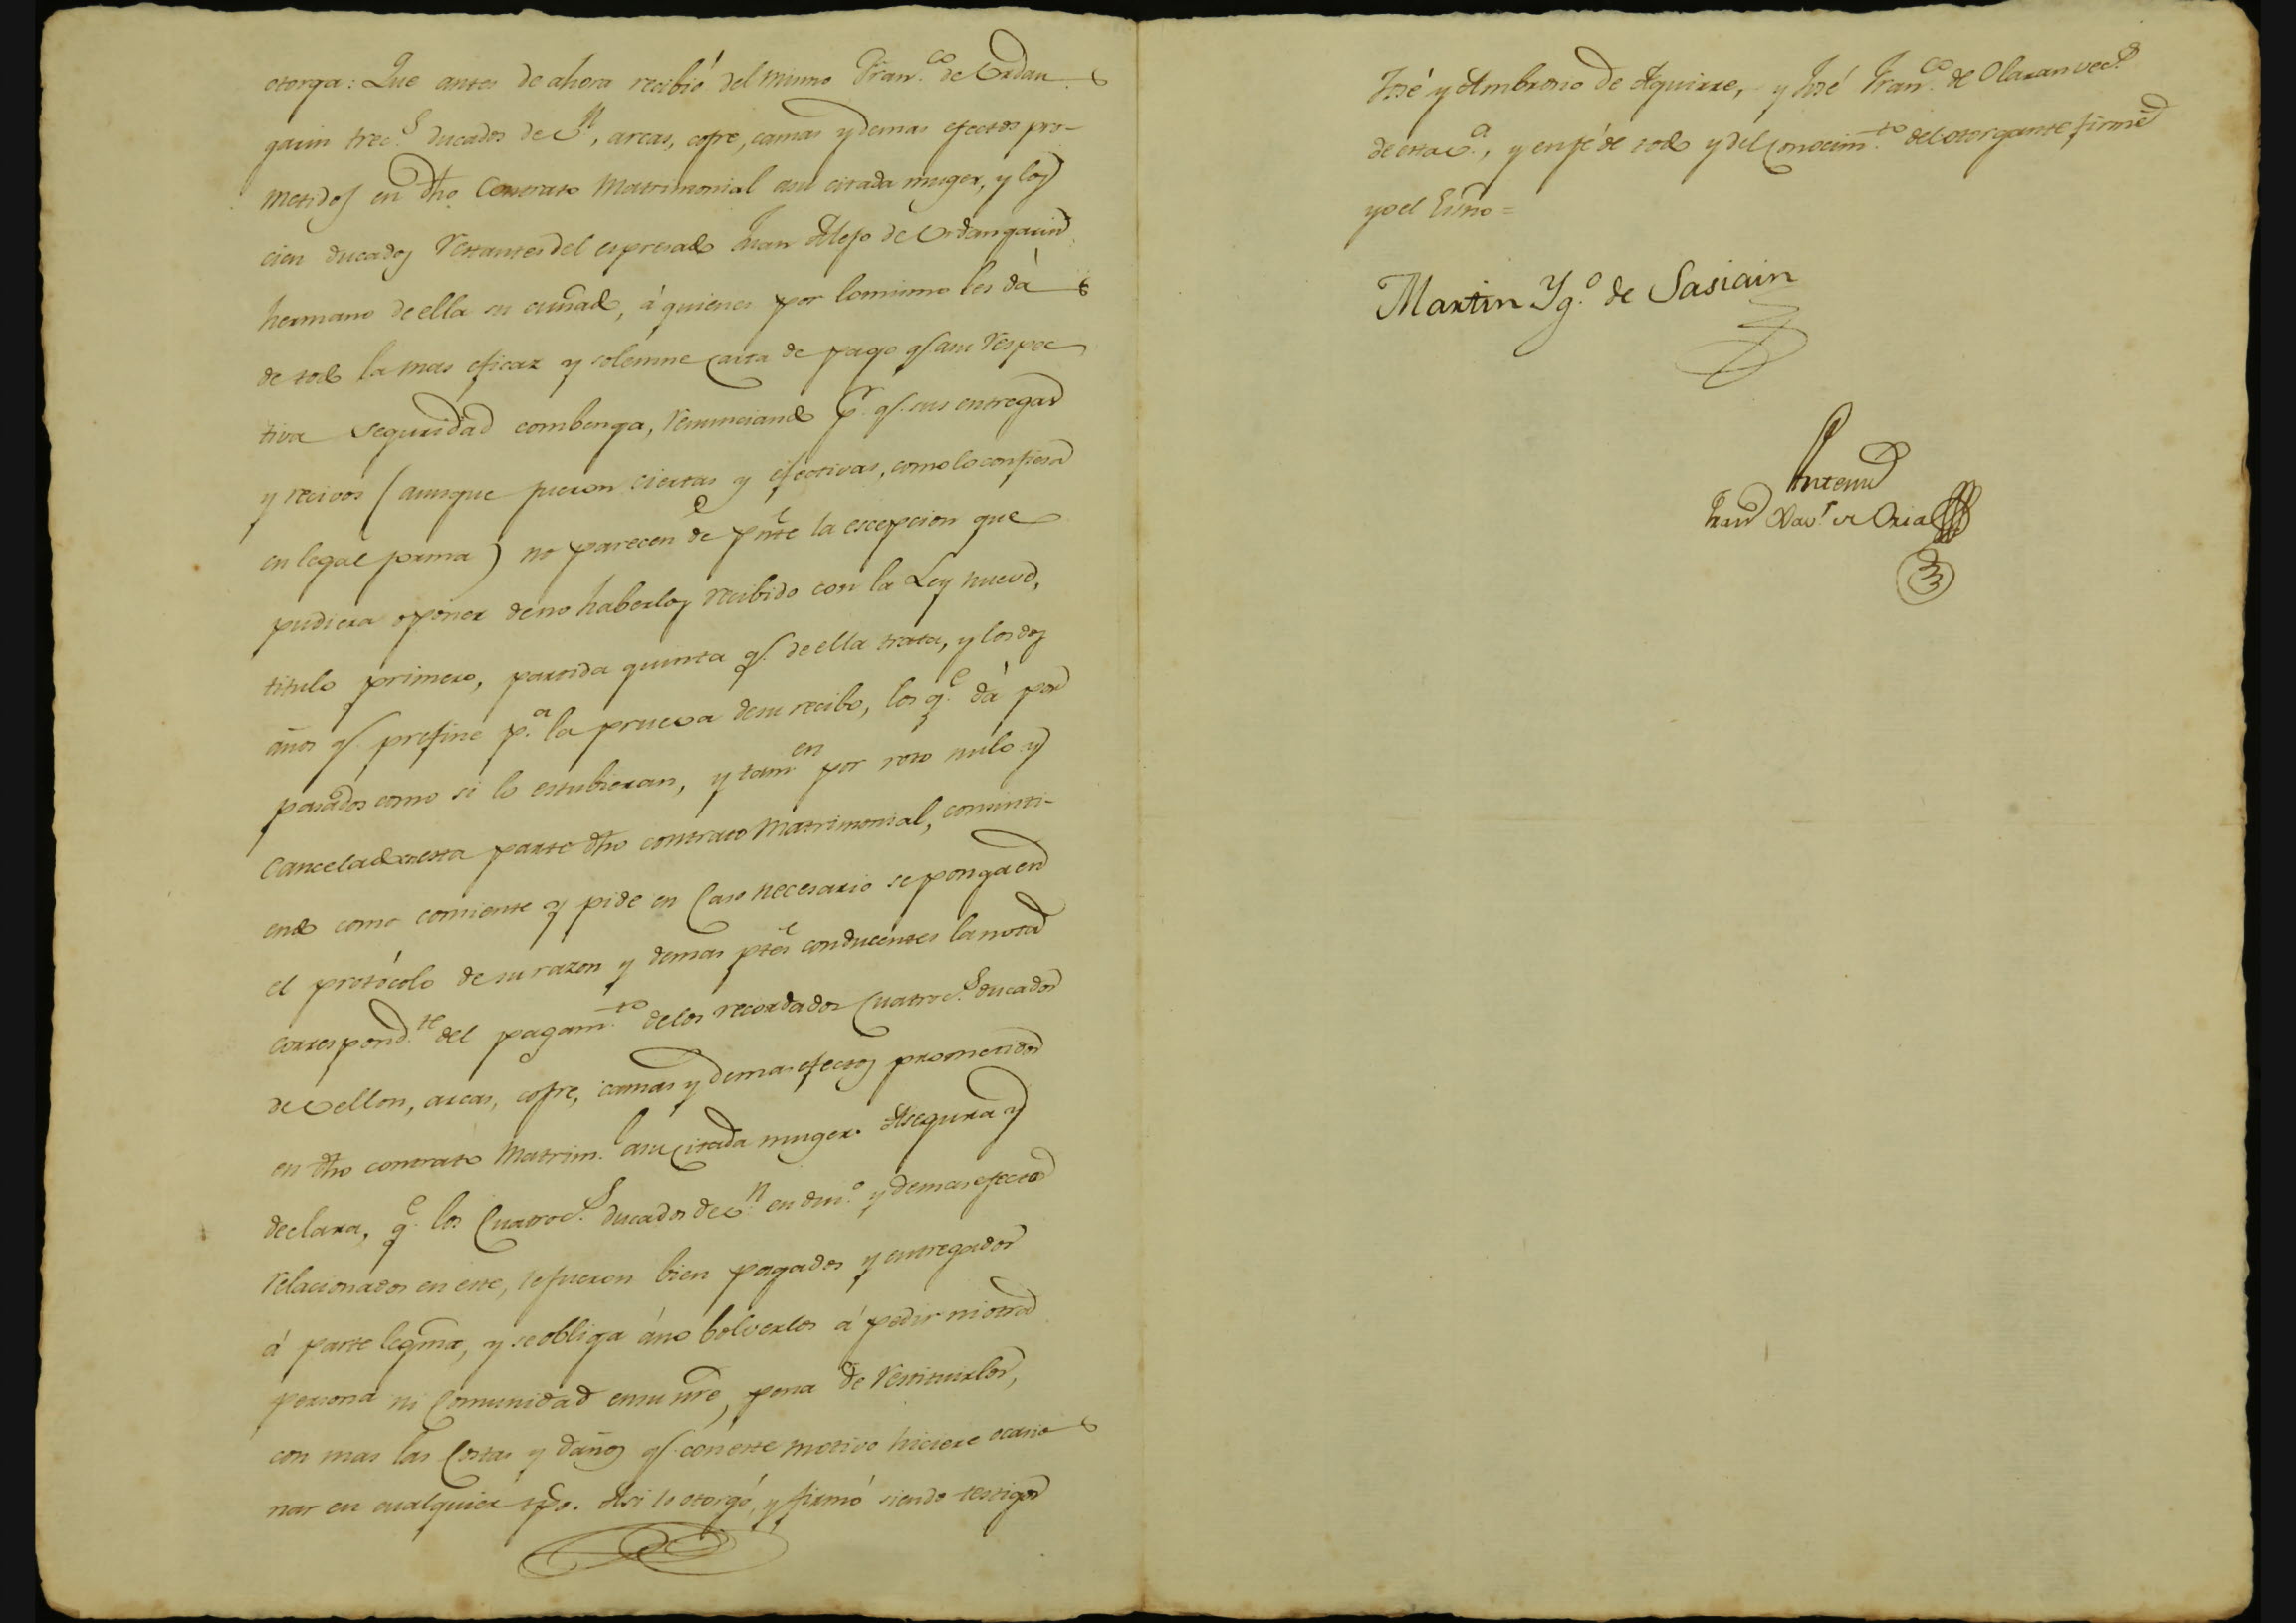 otorga: Que antes de ahora recibió del mismo Fran.co de Urdan
garin trec.s ducados de v.n, arcas, cofre, camas y demas efectos pro-
metidos en dho. Contrato Matrimonial a su citada muger, y los
cien ducados restantes del espresado Juan Alejo de Urdangarin
hermano de ella su cuñado, á quienes por lo mismo les dá
de todo la mas eficaz y solemne carta de pago q.e a su respec
tiva seguridad combenga, renunciando p.r q.e sus entregas
y recivos (aunque fueron ciertas y efectivas, como lo confiesa
en legal forma) no parecen de pnte la escepcion que
pudiera oponer de no haberlos recibido con la Ley nueva,
titulo primero, partida quinta q.e de ella trata, y los dos
años q.e prefine p.a la prueva de su recibo, los q.e dá por
pasados como si lo estubieran, y tam.en por roto nulo y
cancelado en esta parte dho contrato Matrimonial, consinti-
endo como consiente y pide en Caso necesario se ponga en
el protócolo de su razon y demas ptes conducentes la nota
correspond.te del pagam.to de los recordados Cuatroc.s ducados
de vellon, arcas, cofre, camas y demas efectos prometidos
en dho contrato Matrim.l a su citada muger. Asegura y
declara, q.e los Cuatroc.s ducados de v.n en din.o y demas efectos
relacionados en este, le fueron bien pagados y entregados
á parte legma, y se obliga á no bolverlos á pedir ni otra
persona ni Comunidad en su nre, pena de restituirlos,
con mas las Costas y daños q.e con este motivo hiciere ocasio
nar en cualquier tpo. Asi lo otorgó, y firmó siendo testigos
José y Ambrosio de Aguirre, y José Fran.co de Olaran vec.s
de esta v.a, y en fé de todo y del conocim.to del otorgante firmé
yo el Esno =
Martin Yg.o de Sasiain
Antemi
Fran Xav.r de Oria